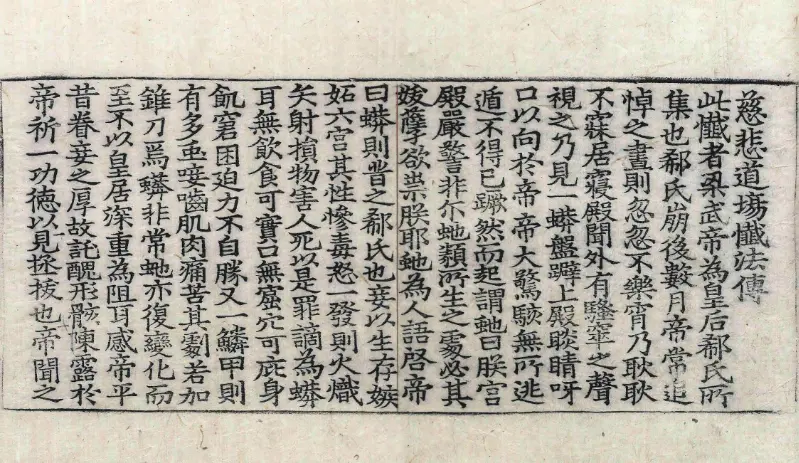 慈悲道場懺法傳
此懺者梁武帝為皇后郗氏所
集也郗氏崩後數月帝常追
悼之晝則忽忽不樂宵乃耿耿
不寐居寢殿聞外有騷窣之聲
視之乃見一蟒盤躃上殿睒睛呀
口以向於帝帝大驚駭無所逃
遁不得已蹶然而起謂虵曰朕宮
殿嚴警非尒虵類所生之處必其
妖孽欲祟朕耶虵為人語啓帝
曰蟒則昔之郗氏也妾以生存嫉
妬六宮其性慘毒怒一發則火熾
矢射損物害人死以是罪謫為蟒
耳無飲食可實口無窟穴可庇身
飢窘困迫力不自勝又一鱗甲則
有多虫唼嚙肌肉痛苦其劇若加
錐刀焉蟒非常虵亦復變化而
至不以皇居深重為阻耳感帝平
昔眷妾之厚故託醜形骸陳露於
帝祈一功德以見拯拔也帝聞之